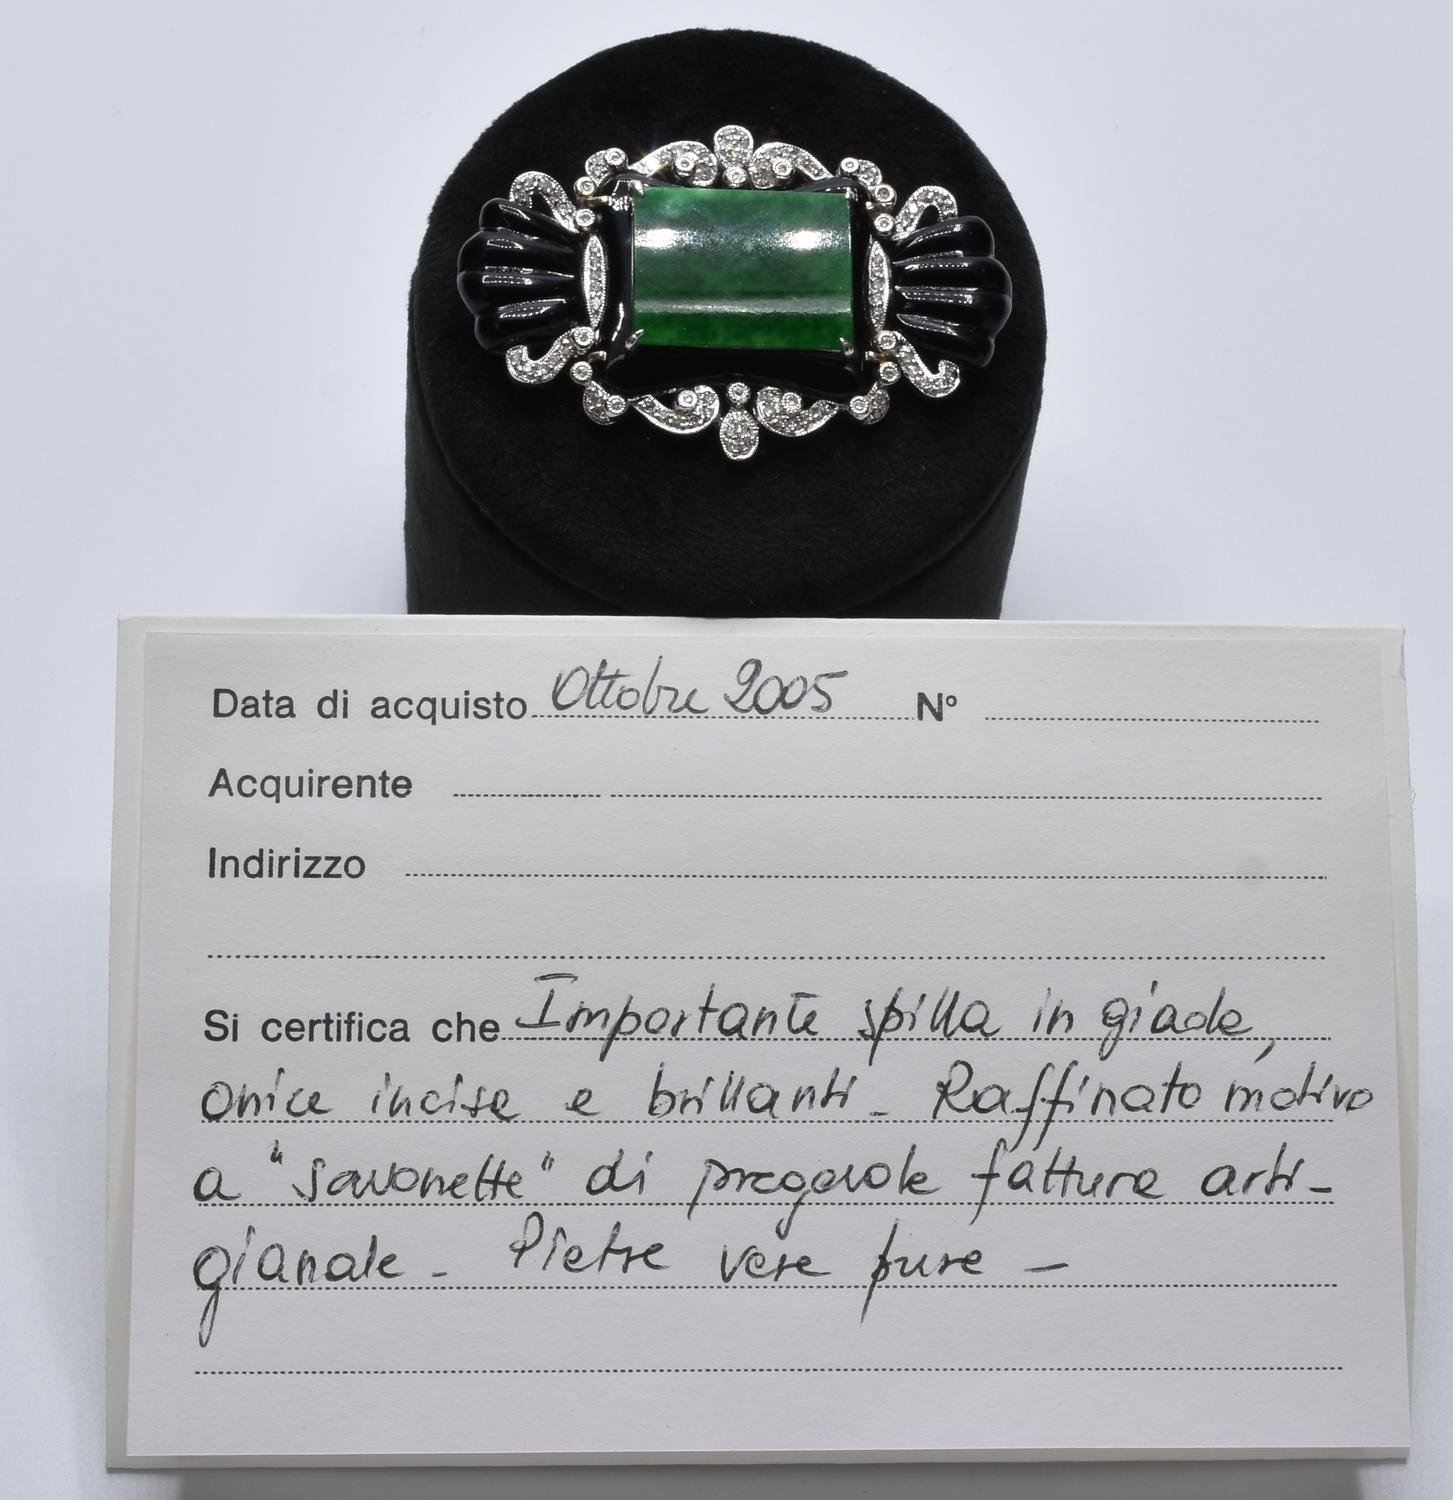 Data di acquisto Ottobre 2005 Nº
Acquirente
Indirizzo
Si certifica che Importante spilla in giada,
onice incisa e brillanti - Raffinato motivo
a "savonette" di pregevole fattura arti-
gianale - Pietre vere pure -